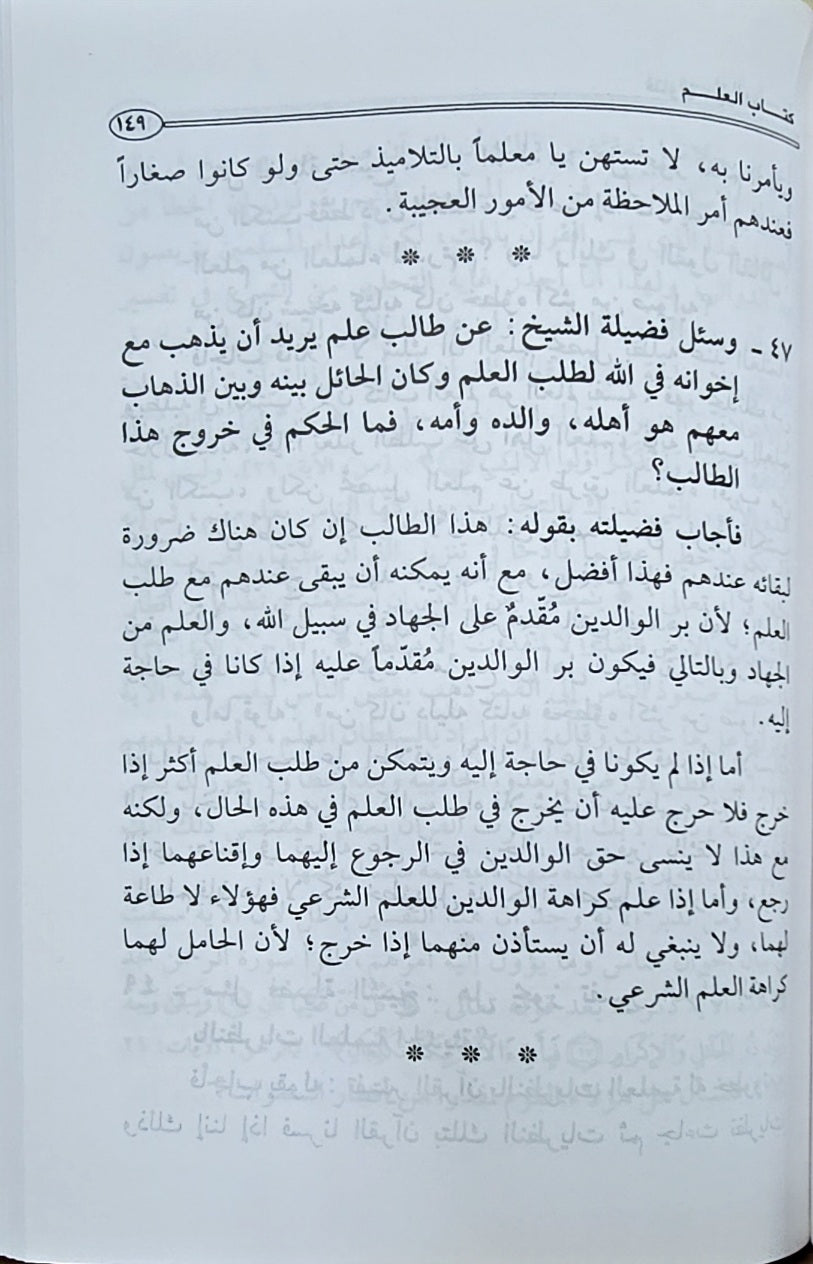 كتاب العلم
١٤٩
ويأمرنا به، لا تستهن يا معلماً بالتلاميذ حتى ولو كانوا صغاراً
فعندهم أمر الملاحظة من الأمور العجيبة.
* * *
٤٧ - وسئل فضيلة الشيخ: عن طالب علم يريد أن يذهب مع
إخوانه في الله لطلب العلم وكان الحائل بينه وبين الذهاب
معهم هو أهله، والده وأمه، فما الحكم في خروج هذا
الطالب؟
فأجاب فضيلته بقوله: هذا الطالب إن كان هناك ضرورة
لبقائه عندهم فهذا أفضل، مع أنه يمكنه أن يبقى عندهم مع طلب
العلم؛ لأن بر الوالدين مُقدّمٌ على الجهاد في سبيل الله، والعلم من
الجهاد وبالتالي فيكون بر الوالدين مُقدّماً عليه إذا كانا في حاجة
إليه.
أما إذا لم يكونا في حاجة إليه ويتمكن من طلب العلم أكثر إذا
خرج فلا حرج عليه أن يخرج في طلب العلم في هذه الحال، ولكنه
مع هذا لا ينسى حق الوالدين في الرجوع إليهما وإقناعهما إذا
رجع، وأما إذا علم كراهة الوالدين للعلم الشرعي فهؤلاء لا طاعة
لهما، ولا ينبغي له أن يستأذن منهما إذا خرج؛ لأن الحامل لهما
كراهة العلم الشرعي.
* * *